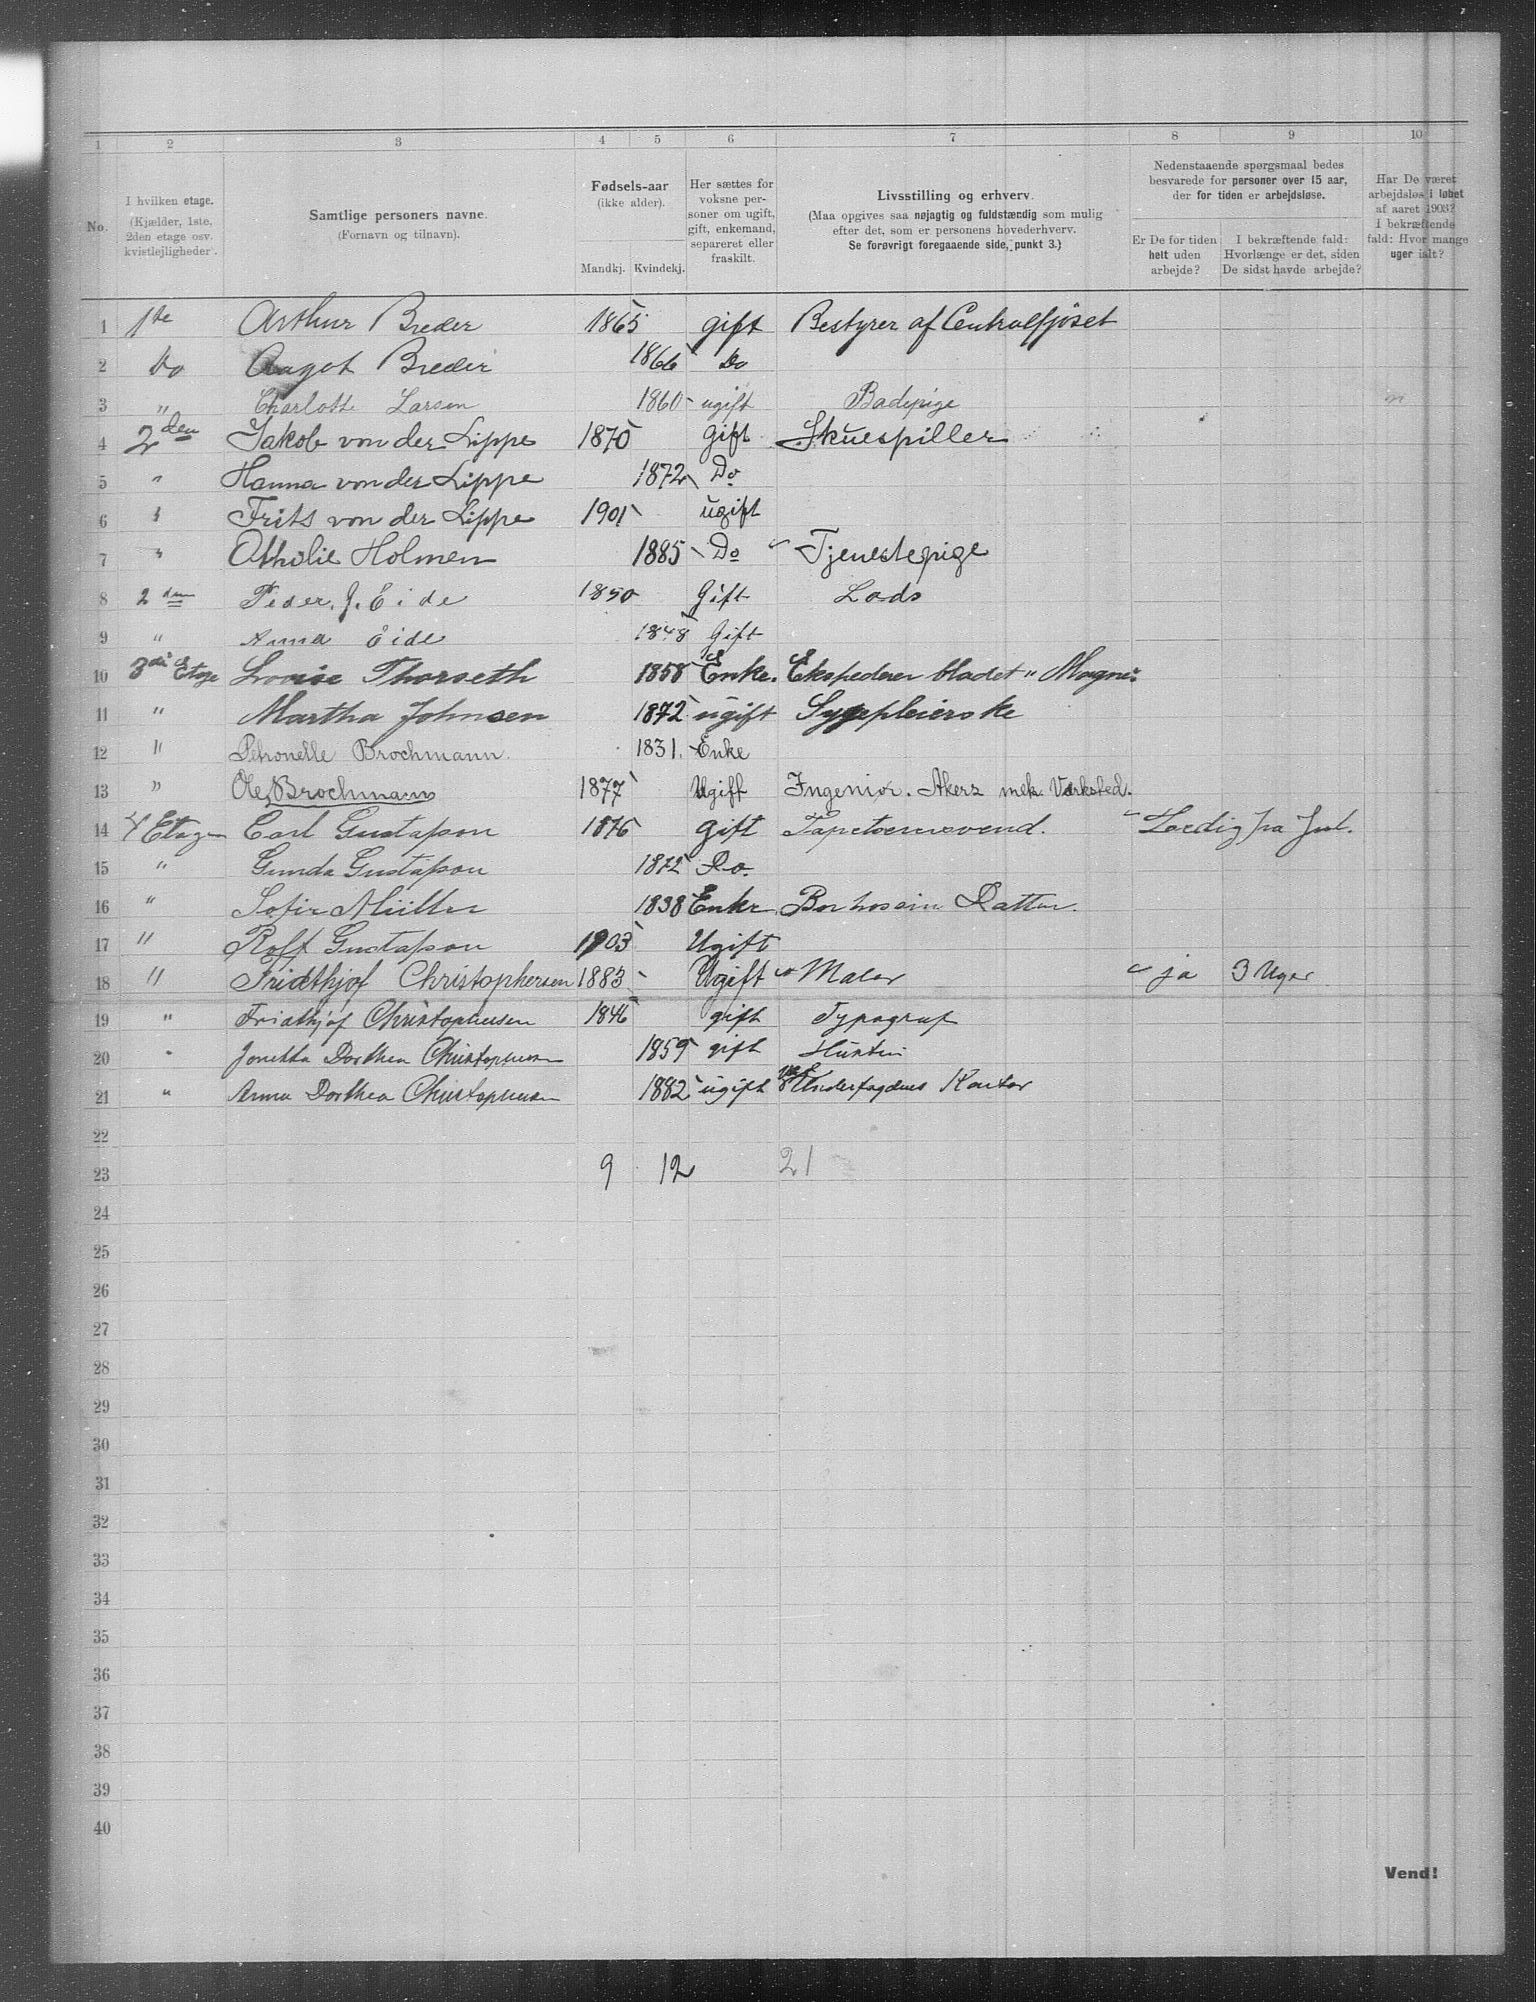 1 2 3 4 5 6 7 8 9 10
No.
I hvilken etage.
(Kjælder, 1ste,
2den etage osv.
kvistlejligheder.
Samtlige personers navne.
(Fornavn og tilnavn).
Fødsels-aar
(ikke alder).
Mandkj. Kvindekj.
Her sættes for
voksne per-
soner om ugift,
gift, enkemand,
separeret eller
fraskilt.
Livsstilling og erhverv.
(Maa opgives saa nøjagtig og fuldstændig som mulig
efter det, som er personens hovederhverv.
Se forøvrigt foregaaende side, punkt 3.)
Nedenstaaende spørgsmaal bedes
besvarede for personer over 15 aar,
der for tiden er arbejdsløse.
Er De for tiden
helt uden
arbejde?
I bekræftende fald:
Hvorlænge er det, siden
De sidst havde arbejde?
Har De været
arbejdsløs i løbet
af aaret 1903?
I bekræftende
fald: Hvor mange
uger ialt?
1 1ste Arthur Breder 1865 gift Bestyrer af Centralfjøset
2 Do Aagot Breder 1866 Do
3 " Charlotte Larsen 1860 ugift Badepige
4 2den Jakob von der Lippe 1870 gift Skuespiller
5 " Hanna von der Lippe 1872 Do
6 " Frits von der Lippe 1901 ugift
7 " Othilie Holmen 1885 Do Tjenestepige
8 2den Peder. J. Eide 1850 Gift Lods
9 " Anna Eide 1848 Gift
10 3die Etage Lovise Thorseth 1858 Enke. Ekspederer bladet "Magne".
11 " Martha Johnsen 1872 ugift Sygepleierske
12 " Petronelle Brochmann. 1831. Enke
13 " Ole Brochmann 1877 Ugift Ingeniør. Akers mek. Værksted.
14 4 Etage Carl Gustafson 1876 gift Tapetserersvend. Ledig fra Jul.
15 " Gunda Gustafson 1872 Do.
16 " Sofie Müller 1838 Enke Bor hos sin Datter.
17 " Rolf Gustafson 1903 Ugift
18 " Fridthjof Christophersen 1883 Ugift Maler ja 3 Uger
19 " Fridthjof Christophersen 1846 gift Typograf
20 " Jonetta Dorthea Christophersen 1859 gift Hustru
21 " Anna Dorthea Christophersen 1882 ugift Kontor
22
23 9 12 21
24
25
26
27
28
29
30
31
32
33
34
35
36
37
38
39
40
Vend!